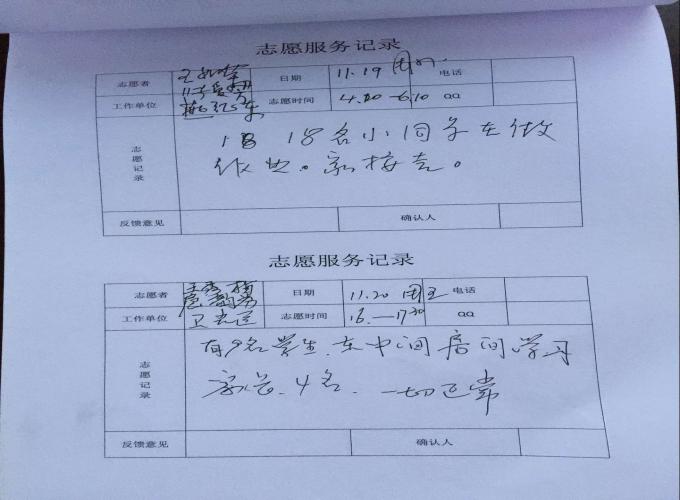 志愿服务记录
志愿者 日期 11.19 电话
工作单位 志愿时间 4.00-6.10 QQ
志愿记录 18 18名小同学在做
作业。家接走。
反馈意见 确认人
志愿服务记录
志愿者 日期 11.20 周五 电话
工作单位 志愿时间 16.—17.30 QQ
志愿记录 有9名学生.在中间房间学习
家长.4名.一切正常
反馈意见 确认人